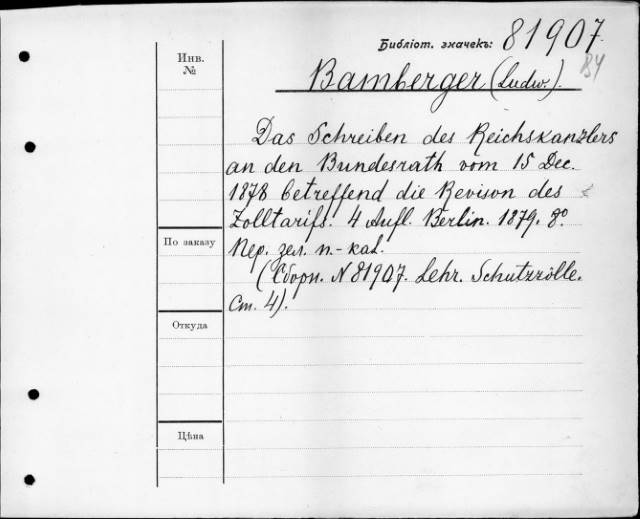 Библіот. значекъ: 81907.
84
Инв.
№
Bamberger (Ludw.).
Das Schreiben des Reichskanzlers
an den Bundesrath vom 15 Dec.
1878 betreffend die Revison des
Zolltarifs. 4 Aufl. Berlin. 1879. 8º
Пер. зел. п.-кал.
(Сборн. N 81907. Lehr. Schutzzölle.
Ст. 4).
По заказу
Откуда
Цѣна